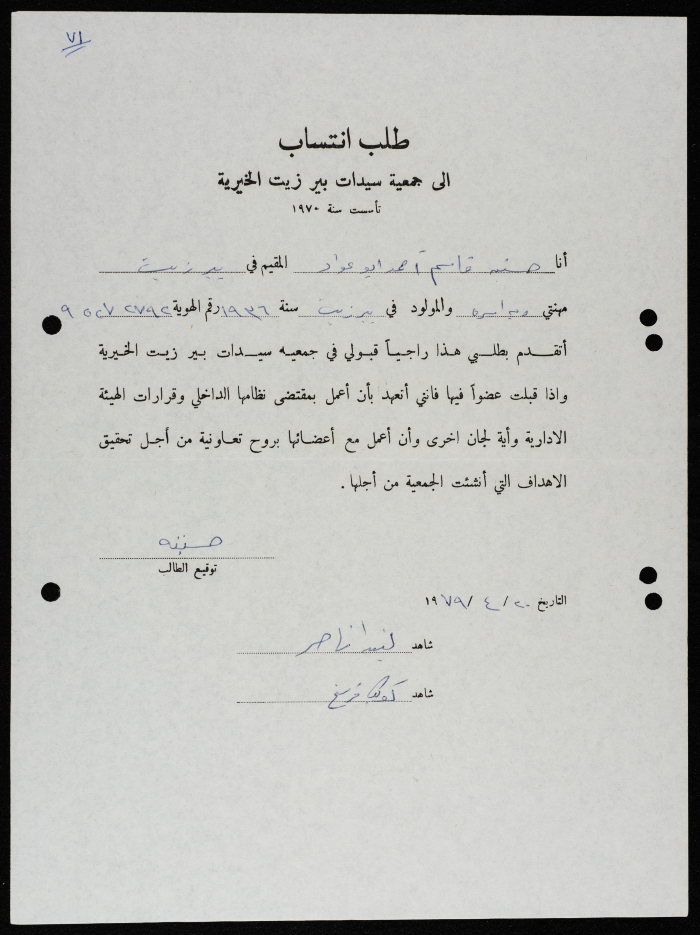 ٧١
طلب انتساب
الى جمعية سيدات بير زيت الخيرية
تأسست سنة ١٩٧٠
أنا حسنه قاسم أحمد ابو عواد المقيم في بير زيت
مهنتي ربة اسره والمولود في بيرزيت سنة ١٩٣٦ رقم الهوية ٩٥٢٧٢٧٩٢
أتقدم بطلبي هذا راجياً قبولي في جمعيه سيدات بير زيت الخيرية
واذا قبلت عضواً فيها فانني أتعهد بأن أعمل بمقتضى نظامها الداخلي وقرارات الهيئة
الادارية وأية لجان اخرى وأن أعمل مع أعضائها بروح تعاونية من أجل تحقيق
الاهداف التي أنشئت الجمعية من أجلها .
حسنه
توقيع الطالب
التاريخ ٢٠ / ٤ / ١٩٧٩
شاهد ناصر
شاهد